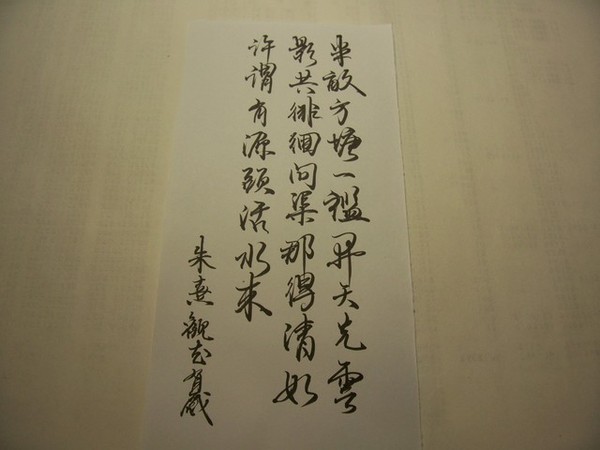 半畝方塘一鑑開天光雲
影共徘徊問渠那得清如
許謂有源頭活水來
朱熹觀書有感